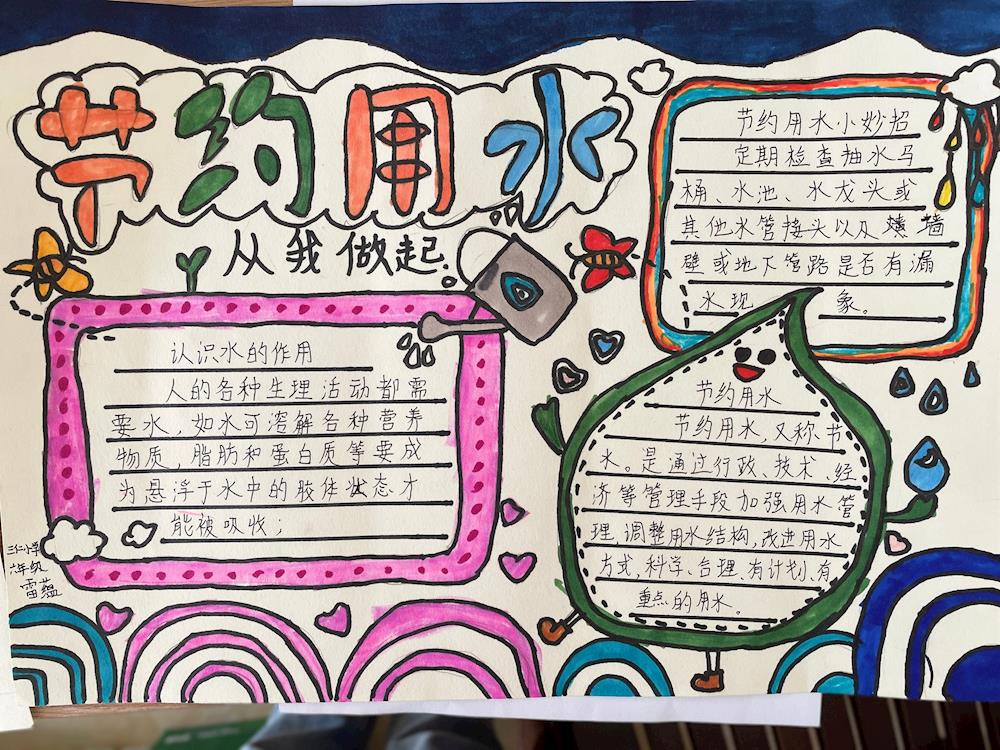 节约用水
从我做起
节约用水小妙招
定期检查抽水马
桶、水池、水龙头或
其他水管接头以及墙
壁或地下管路是否有漏
水现象。
认识水的作用
人的各种生理活动都需
要水，如水可溶解各种营养
物质，脂肪和蛋白质等要成
为悬浮于水中的胶体状态才
能被吸收；
节约用水
节约用水，又称节
水。是通过行政、技术、经
济等管理手段加强用水管
理，调整用水结构，改进用水
方式，科学、合理、有计划、有
重点的用水。
三仁小学
六年级
雷蕴